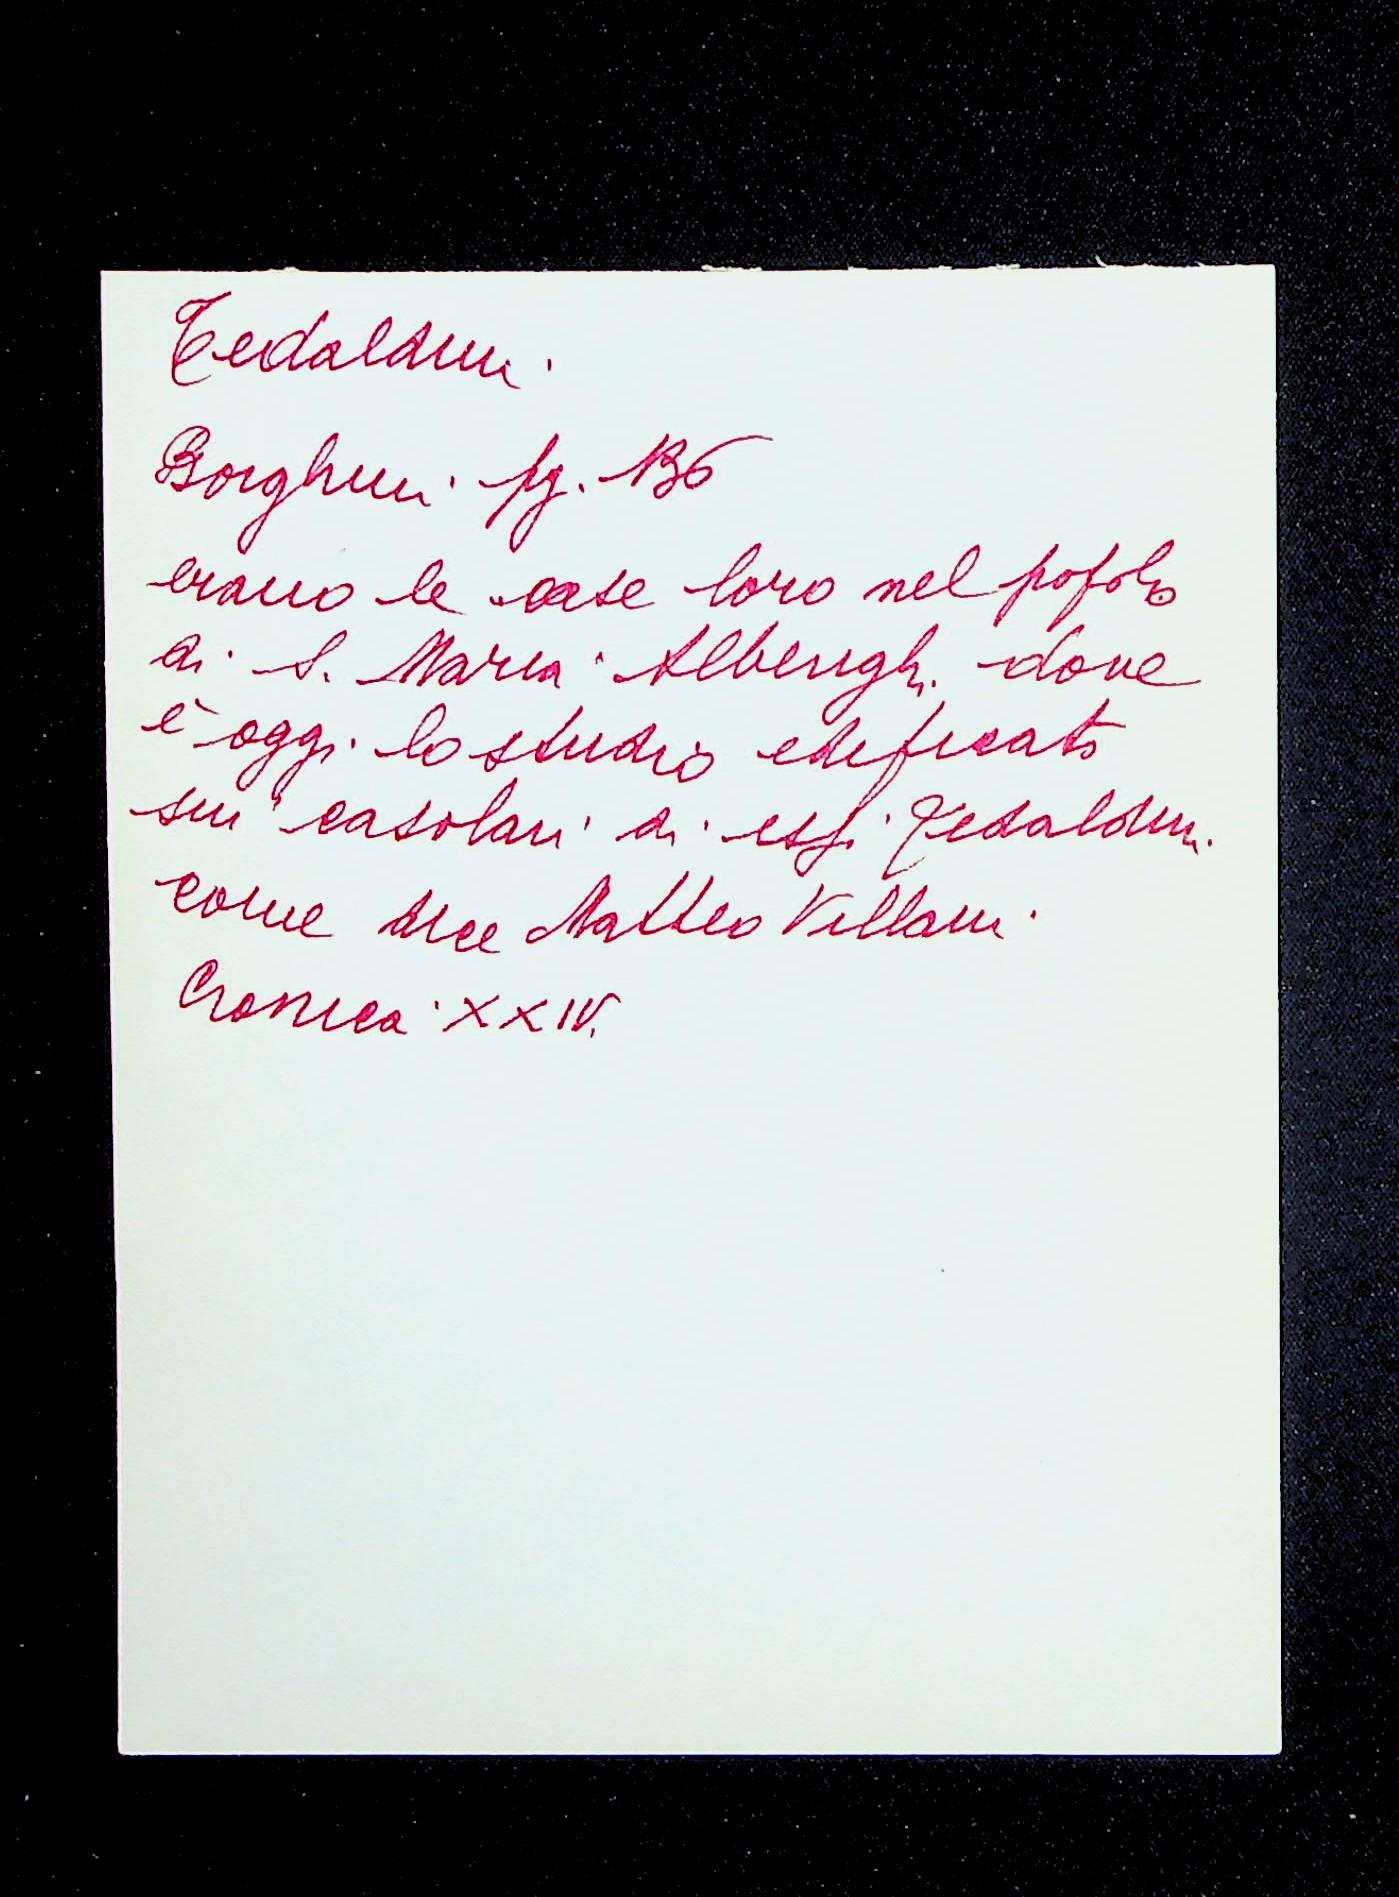 Tedaldini
Borghini pg. 136
erano le case loro nel popolo
di S. Maria Alberighi dove
è oggi lo studio edificato
sui casolari di essi Tedaldini
come dice Matteo Villani
Cronica XXIV.